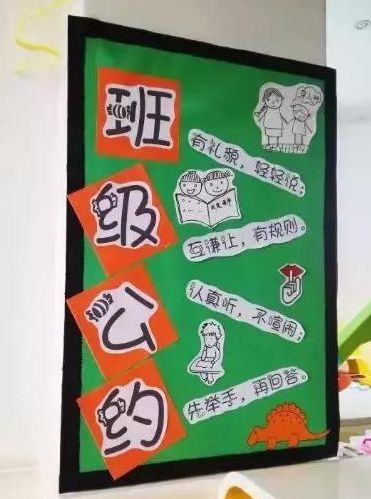 班级公约
有礼貌，轻轻说；
互谦让，有规则。
认真听，不喧闹；
先举手，再回答。